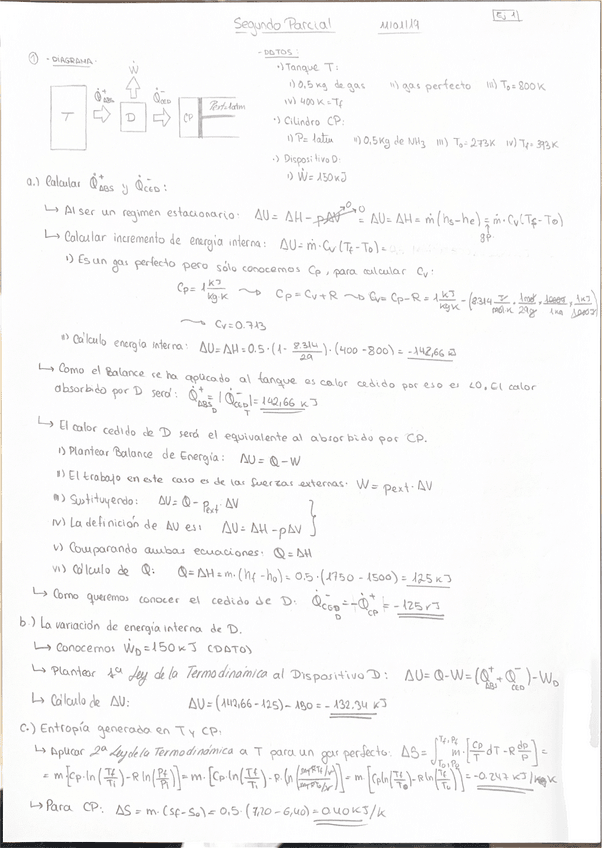 Ej 1
Segundo Parcial 11/01/19
① -DIAGRAMA-
Ẇ
Q̇⁺ABS
Q̇⁻CED
T
D
CP
P=1atm
-DATOS:
·) Tanque T:
i) 0,5 kg de gas ii) gas perfecto iii) To=800K
iv) 400K=Tf
·) Cilindro CP:
i) P=1atm ii) 0,5kg de NH3 iii) To=273K iv) Tf=393K
·) Dispositivo D:
i) Ẇ=150kJ
a.) Calcular Q̇⁺ABS y Q̇⁻CED:
↳ Al ser un regimen estacionario: ΔU = ΔH - pΔV⁰ = ΔU = ΔH = ṁ(hs-he) = ṁ·Cv(Tf-To)
GP
↳ Calcular incremento de energía interna: ΔU=ṁ·Cv(Tf-To)=
i) Es un gas perfecto pero sólo conocemos Cp, para calcular Cv:
Cp=1 kJ/kg·K ⇝ Cp=Cv+R ⇝ Cv=Cp-R=1 kJ/kg·K -
⇝ Cv=0.713
ii) Cálculo energía interna: ΔU=ΔH=0.5·(1-8.314/29)·(400-800)=-142,66 kJ
↳ Como el Balance se ha aplicado al tanque es calor cedido por eso es <0. El calor
absorbido por D será: Q̇⁺ABS D = |Q̇⁻CED T| = 142,66 kJ
↳ El calor cedido de D será el equivalente al absorbido por CP.
i) Plantear Balance de Energía: ΔU=Q-W
ii) El trabajo en este caso es de las fuerzas externas. W = pext·ΔV
iii) Sustituyendo: ΔU=Q-pext·ΔV
iv) La definición de ΔU es: ΔU=ΔH-pΔV
v) Comparando ambas ecuaciones: Q=ΔH
vi) Cálculo de Q: Q=ΔH=m·(hf-ho)=0.5·(1750-1500)=125kJ
↳ Como queremos conocer el cedido de D: Q̇⁻CED D = -Q̇⁺CP = -125kJ
b.) La variación de energía interna de D.
↳ Conocemos ẆD=150kJ (DATO)
↳ Plantear 1ª Ley de la Termodinámica al Dispositivo D: ΔU=Q-W=(Q⁺ABS+Q⁻CED)-WD
↳ Cálculo de ΔU: ΔU=(142,66-125)-150=-132.34 kJ
c.) Entropía generada en T y CP:
↳ Aplicar 2ª Ley de la Termodinámica a T para un gas perfecto: ΔS=∫To,Po Tf,Pf m·[Cp/T dT-R dp/P]=
=m[Cp·ln(Tf/Ti)-R ln(Pf/Pi)]=m·[Cp·ln(Tf/Ti)-R·ln]=m·[Cp ln(Tf/To)-R ln(Tf/To)]=-0.247 kJ/K
↳ Para CP: ΔS=m·(sf-so)=0,5·(7,20-6,40)=0.40kJ/K